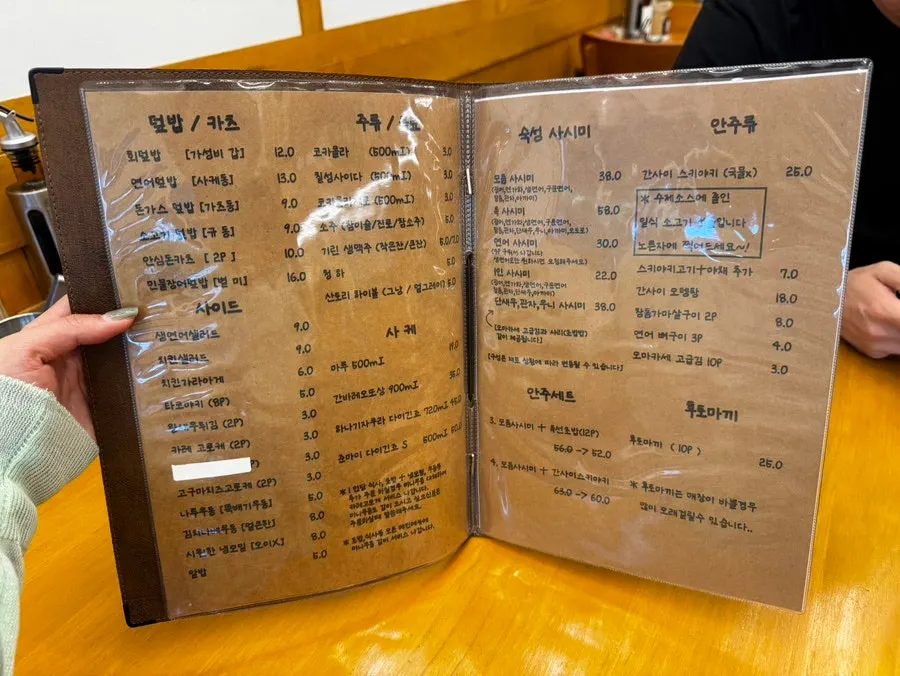 덮밥 / 카츠
회덮밥 [가성비 갑] 12.0
연어덮밥 [사케동] 13.0
돈가스 덮밥 [가츠동] 9.0
소고기 덮밥 [규 동] 9.0
안심돈카츠 [ 2P ] 10.0
민물장어덮밥 [벌 미] 16.0
사이드
생연어샐러드 9.0
치킨샐러드 9.0
치킨가라아게 6.0
타코야키 (8P) 5.0
왕새우튀김 (2P) 3.0
카레 고로케 (2P) 3.0
P) 3.0
고구마치즈고로케 (2P) 3.0
나투우동 [뚝배기우동] 5.0
김치나베우동 [얼큰한] 8.0
시원한 냉모밀 [오이X] 8.0
알밥 5.0
주류 /
코카콜라 (500mI) 3.0
칠성사이다 (500mI) 3.0
(500mI) 3.0
소주 (참이슬/진로/참소주) 5.0
기린 생맥주 (작은잔/큰잔) 5.0/7.0
청 하 5.0
산토리 하이볼 (그냥 / 얼그레이)
사 케
마루 500mI
간바레오또상 900mI
하나기자쿠라 다이긴죠 720mI
죤마이 다이긴죠 S 500mI
숙성 사시미
모듬 사시미 38.0
특 사시미 58.0
연어 사시미 30.0
1인 사시미 22.0
단새우,관자,우니 사시미 38.0
[오마카세 고급김과 사리(초밥밥)
같이 제공됩니다]
[구성은 재료 상황에 따라 변동될 수 있습니다]
안주세트
3. 모듬사시미 + 특연초밥(12P)
56.0 -> 52.0
4. 모듬사시미 + 간사이스키야키
63.0 -> 60.0
안주류
간사이 스키야키 (국물x) 25.0
* 수제소스에 졸인
일식 소고기 입니다
노른자에 찍어드세요~!
스키야키고기+야채 추가 7.0
간사이 오뎅탕 18.0
참돔가마살구이 2P 8.0
연어 배구이 3P 4.0
오마카세 고급김 10P 3.0
후토마끼
후토마끼 (10P ) 25.0
* 후토마끼는 매장이 바쁠경우
많이 오래걸릴수 있습니다..